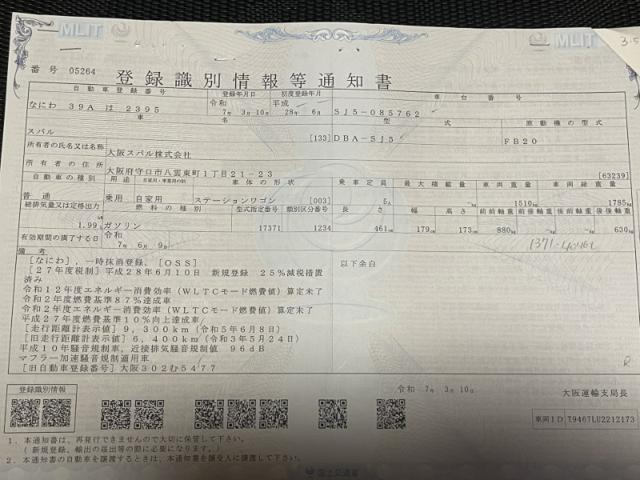 MLIT
MLIT
3.5
番号 05264
登録識別情報等通知書
自動車登録番号 登録年月日 初度登録年月 車台番号
なにわ 39A は 2395 令和 7年 3月10日 平成 28年 6月 SJ5-085762
車名 型式 原動機の型式
スバル [133] DBA-SJ5 FB20
所有者の氏名又は名称 大阪スバル株式会社
所有者の住所 大阪府守口市八雲東町1丁目21-23 [63239]
自動車の種別 用途 自家用・事業用の別 車体の形状 乗車定員 最大積載量 車両重量 車両総重量
普通 乗用 自家用 ステーションワゴン [003] 5人 1510kg 1785kg
総排気量又は定格出力 燃料の種類 型式指定番号 類別区分番号 長さ 幅 高さ 前前軸重 前後軸重 後前軸重 後後軸重
1.99 ガソリン 17371 1234 461cm 179cm 173cm 880kg 630kg
有効期間の満了する日 令和 7年 6月 9日
備考
[なにわ],一時抹消登録,[OSS] 以下余白
[27年度税制]平成28年6月10日 新規登録 25%減税措置
済み
令和12年度エネルギー消費効率(WLTCモード燃費値)算定未了
令和2年度燃費基準87%達成車
令和2年度エネルギー消費効率(WLTCモード燃費値)算定未了
平成27年度燃費基準10%向上達成車
[走行距離計表示値]9,300km(令和5年6月8日)
[旧走行距離計表示値]6,400km(令和3年5月24日)
平成10年騒音規制車,近接排気騒音規制値 96dB
マフラー加速騒音規制適用車
[旧自動車登録番号]大阪302む5477
R
登録識別情報
令和 7年 3月10日 大阪運輸支局長
車両ID T9467LU2212173
1.本通知書は、再発行できませんので大切に保管して下さい。
(新規登録、輸出の届出等の際に必要になります。)
2.本通知書の自動車を譲渡するときは、本通知書を譲受人に譲渡して下さい。
国土交通省